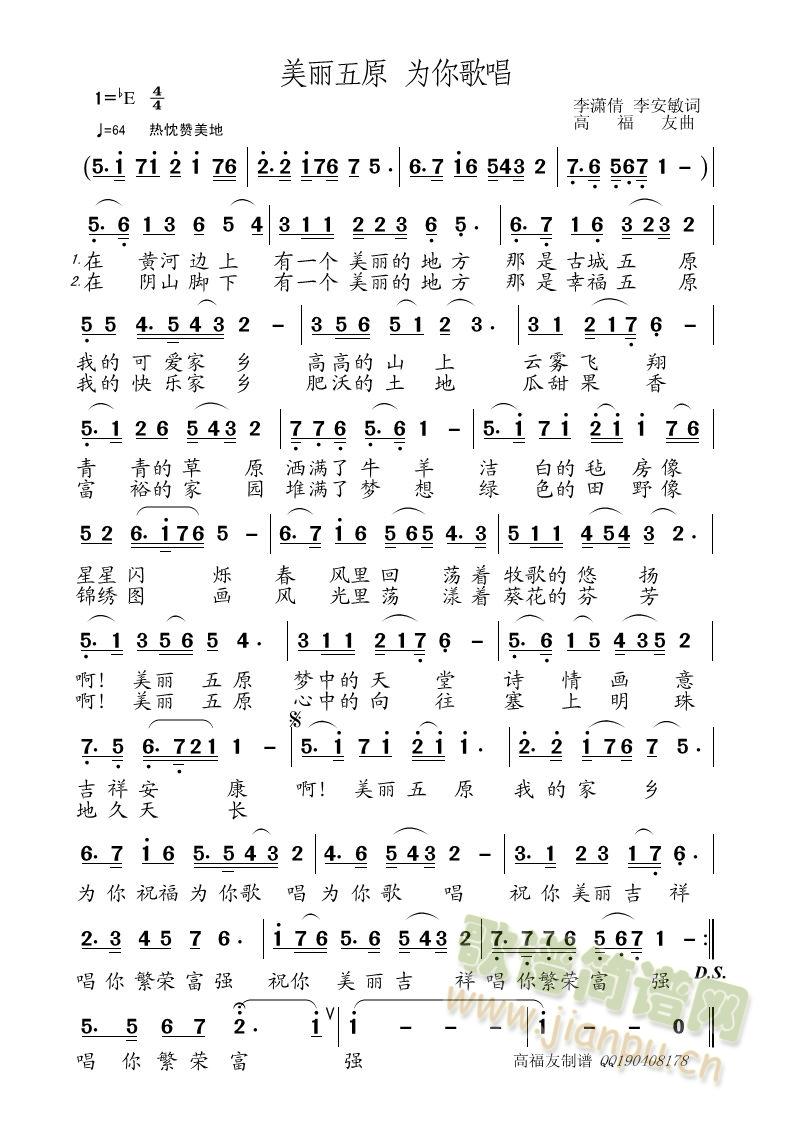 美丽五原 为你歌唱
1=♭E 4/4
李潇倩 李安敏词
高福友曲
♩=64 热忱赞美地
(5. i 7i 2 i 76 | 2. 2 i176 7 5. | 6. 7 i6 543 2 | 7. 6 567 1 - )|
5. 6 1 3 6 5 4 | 3 1 1 2 2 3 6 5. | 6. 7 1 6 3 2 3 |
1.在 黄河边上 有一个美丽的地方 那是古城五原
2.在 阴山脚下 有一个美丽的地方 那是幸福五原
5 5 4. 5 4 3 2 - | 3 5 6 5 1 2 3. | 3 1 2 1 7 6 - |
我的可爱家乡 高高的山上 云雾飞翔
我的快乐家乡 肥沃的土地 瓜甜果香
5. 1 2 6 5 4 3 2 | 7 7 6 5. 6 1 - | 5. i 7 i 2 i 7 6 |
青青的草原洒满了牛羊 洁白的毡房像
富裕的家园堆满了梦想 绿色的田野像
5 2 6. i 7 6 5 - | 6. 7 i 6 5 6 5 4. 3 | 5 1 1 4 5 4 3 2. |
星星闪烁 春风里回荡着牧歌的悠扬
锦绣图画 风光里荡漾着葵花的芬芳
5. 1 3 5 6 5 4. | 3 1 1 2 1 7 6 - | 5. 6 1 5 4 3 5 2 |
啊!美丽五原 梦中的天堂 诗情画意
啊!美丽五原 心中的向往 塞上明珠
7. 5 6. 7 2 1 1 - | 5. i 7 i 2 i. | 2. i 7 6 7 5. |
吉祥安康 啊!美丽五原 我的家乡
地久天长
6. 7 i 6 5. 5 4 3 2 | 4. 6 5 4 3 2 - | 3. 1 2 3 1 7 6. |
为你祝福为你歌唱为你歌唱 祝你美丽吉祥
2. 3 4 5 7 6. | i 7 6 5. 6 5 4 3 2 | 7. 7 7 6 5 6 7 1 - :||
唱你繁荣富强 祝你美丽吉祥唱你繁荣富强
D.S.
5. 5 6 7 2. i | i - - - | i - - 0 ||
唱你繁荣富强
高福友制谱 QQ190408178
歌谱简谱网
www.jianpu.cn